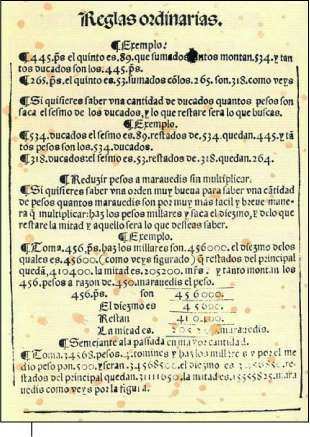 Reglas ordinarias.
¶Exemplo:
¶445.p̃s el quinto es.89.que sumados juntos montan.534.y tan
tos ducados son los.445.p̃s.
¶265.p̃s.el quinto es.53.sumados cõlos.265.son.318.como veys
¶Si quisieres saber vna cantidad de ducados quantos pesos son
saca el sesmo de los ducados, y lo que restare sera lo que buscas.
¶Exemplo.
¶534.ducados el sesmo es.89.restados de.534.quedan.445.y tã
tos pesos son los.534.ducados.
¶318.ducados:el sesmo es.53.restados de.318.quedan.264.
¶Reduzir pesos a marauedis sin multiplicar.
¶Si quisieres saber vna orden muy buena para saber vna cãtidad
de pesos quantos marauedis son por muy mas facil y breue mane
ra q̃ multiplicar:haz los pesos millares y saca el diezmo, y de lo que
restare la mitad y aquello sera lo que desseas saber.
¶Exemplo.
¶Toma.456.p̃s.haz los millares son.456000.el diezmo de los
quales es.45600.(como veys figurado) q̃ restados del principal
quedã,410400.la mitad es.205200.mr̃s. y tanto montan los
456.pesos a razon de.450.marauedis el peso.
456.p̃s. son 456000.
El diezmo es 45600.
Restan 410400.
La mitad es. marauedis.
¶Semejante ala passada en mayor cantidad.
¶Toma.34568.pesos.4.tomines y haz los millares y por el me
dio peso pon.500.y seran.34568500.el diezmo es
stados del principal quedan.31111650.la mitad es.15555825.mara
uedis como veys por la figura.